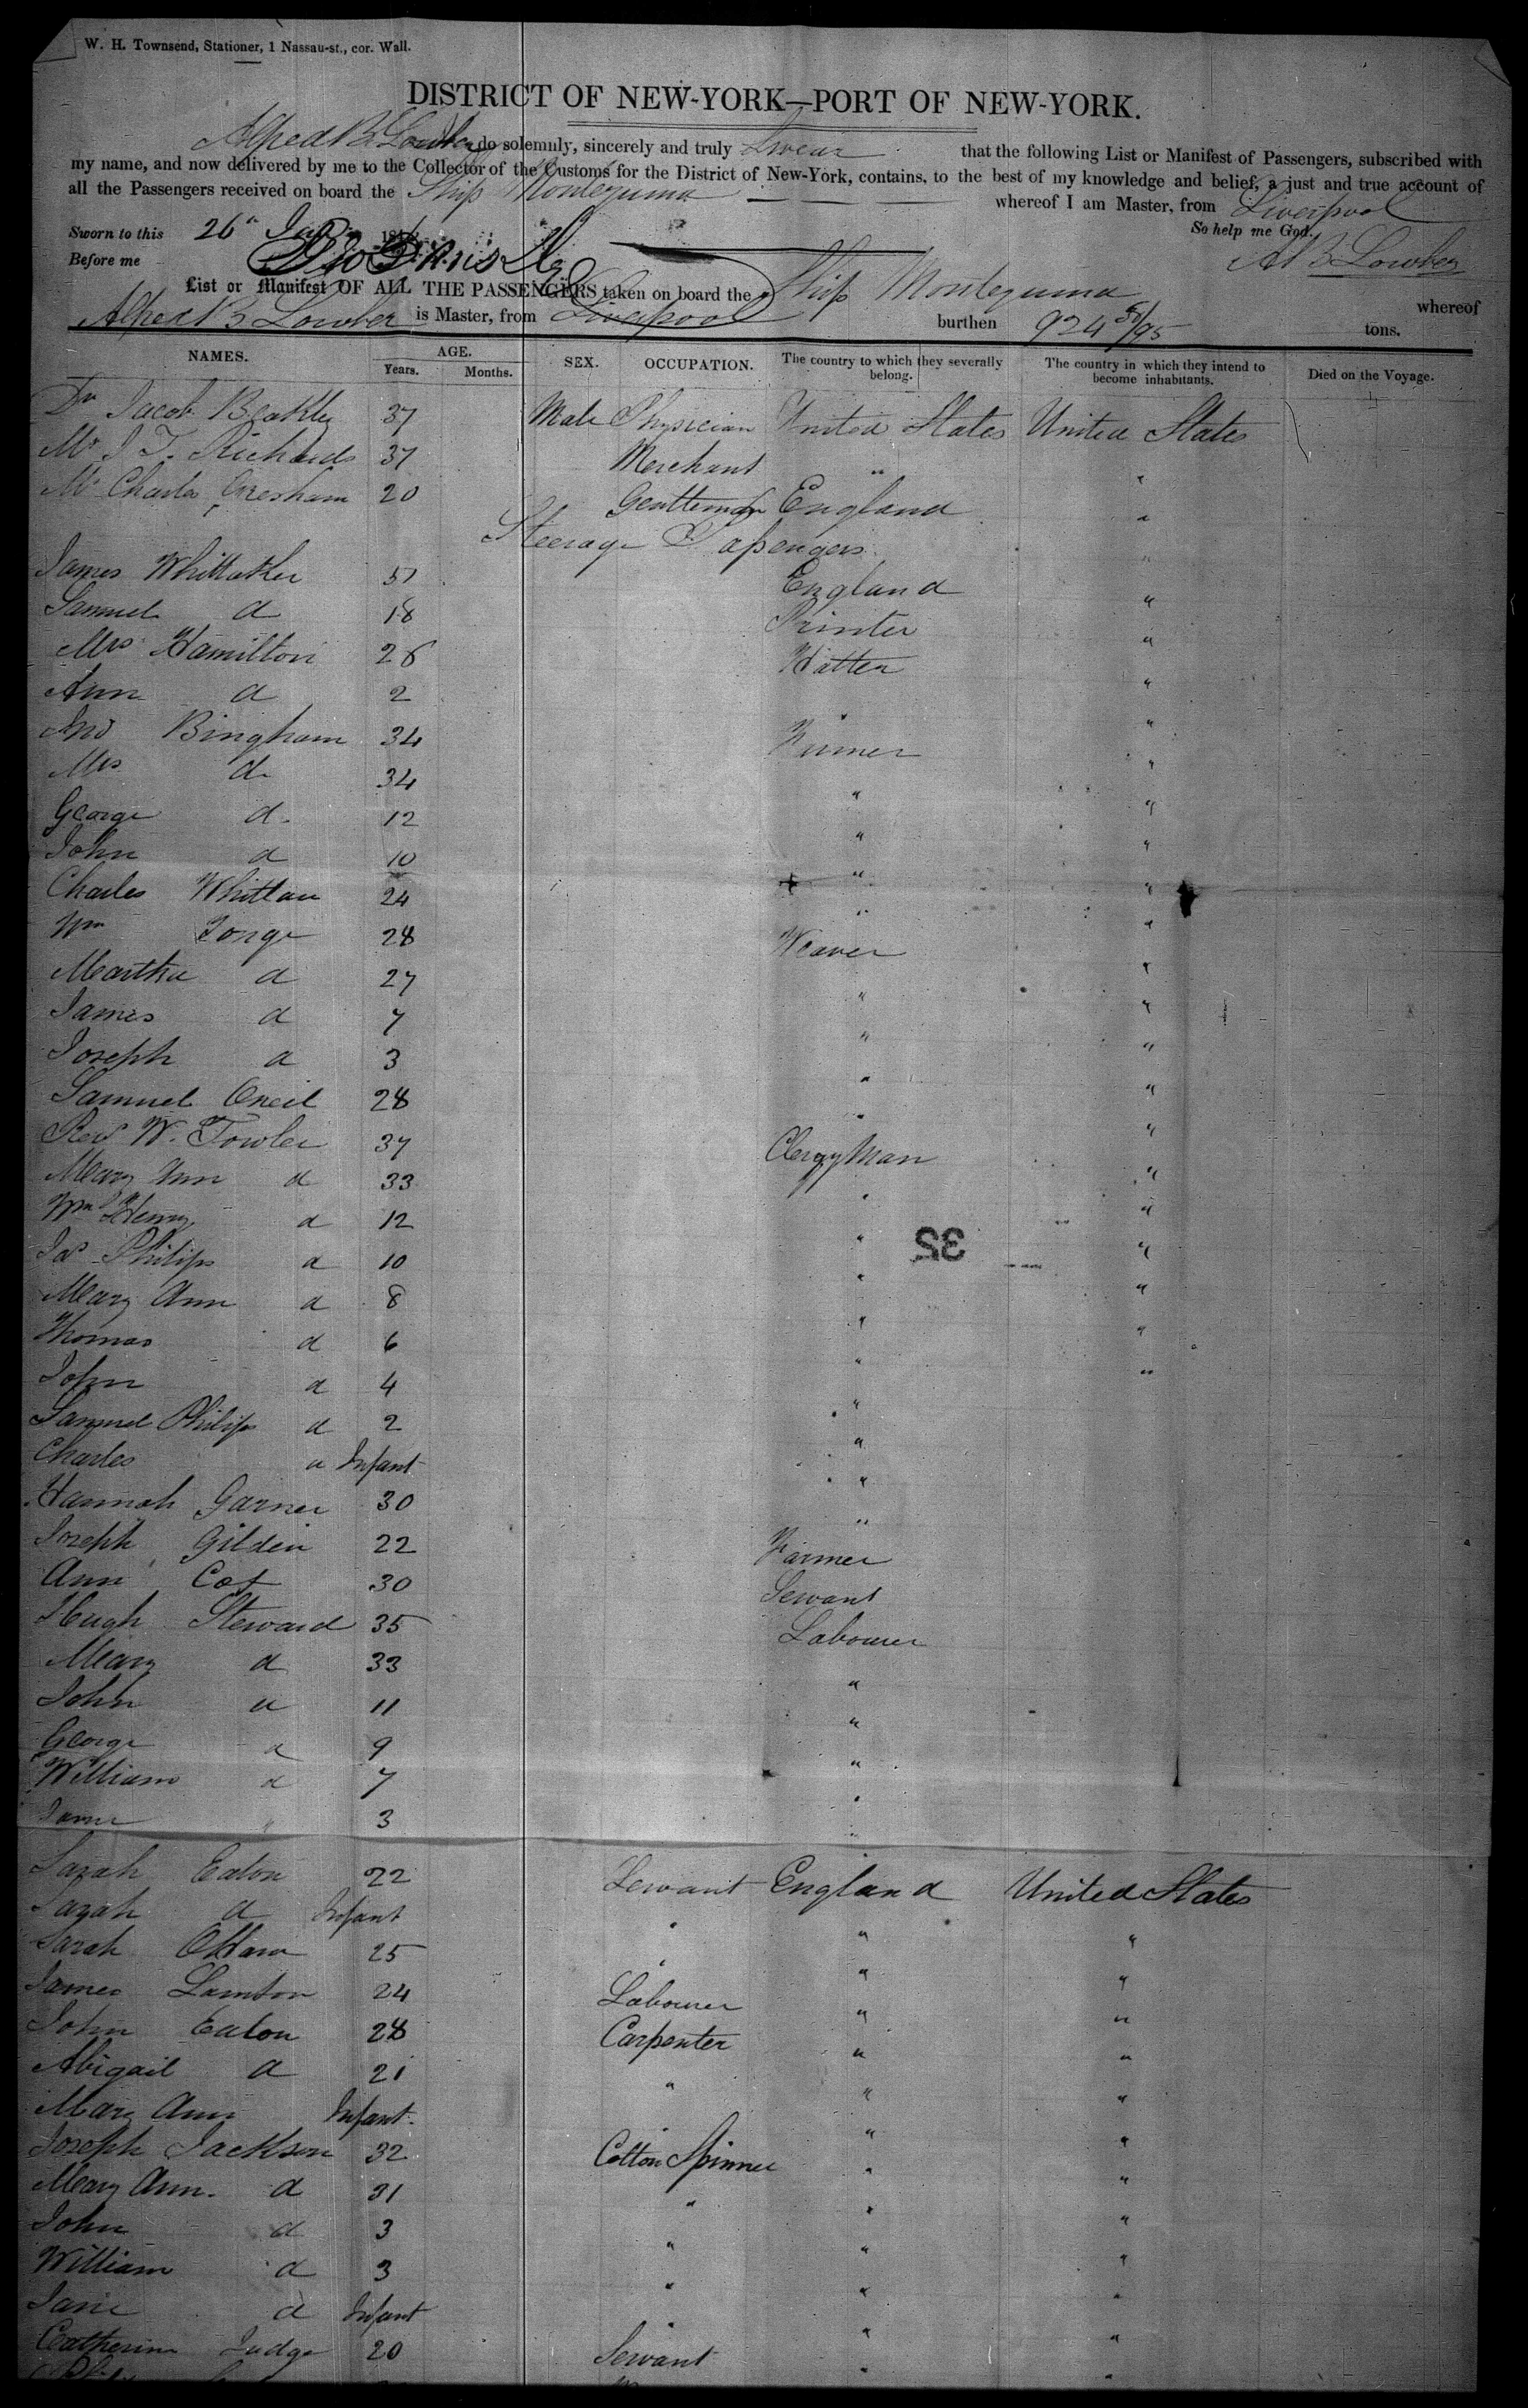 W. H. Townsend, Stationer, 1 Nassau-st., cor. Wall.
DISTRICT OF NEW-YORK—PORT OF NEW-YORK.
Alfred B Lowber do solemnly, sincerely and truly Swear that the following List or Manifest of Passengers, subscribed with
my name, and now delivered by me to the Collector of the Customs for the District of New-York, contains, to the best of my knowledge and belief, a just and true account of
all the Passengers received on board the Ship Montezuma whereof I am Master, from Liverpool
So help me God.
Sworn to this 26th
Before me
A B Lowber
List or Manifest OF ALL THE PASSENGERS taken on board the Ship Montezuma whereof
Alfred B Lowber is Master, from Liverpool burthen 924 /95 tons.
NAMES. AGE. Years. Months. SEX. OCCUPATION. The country to which they severally belong. The country in which they intend to become inhabitants. Died on the Voyage.
Dr Jacob Beakley 37 Male Physician United States United States
Mr J T. Richards 37 Merchant " "
Mr Charles Gresham 20 Gentleman England "
Steerage Passengers "
James Whittaker 51 England "
Samuel d 18 Printer "
Mrs Hamilton 26 Hatter "
Ann d 2 " "
Jno Bingham 34 Farmer "
Mrs d 34 " "
George d 12 " "
John d 10 " "
Charles Whittau 24 " "
Wm Tonge 28 Weaver "
Meartha d 27 " "
James d 7 " "
Joseph d 3 " "
Samuel Oneil 28 " "
Rev W. Fowler 37 ClergyMan "
Meary Ann d 33 " "
Wm Henry d 12 " "
Jas Philips d 10 " "
Meary Ann d 8 " "
Thomas d 6 " "
John d 4 "
Samuel Philips d 2 "
Charles d Infant "
Hannah Garner 30 "
Joseph Gilden 22 Farmer
Ann Cox 30 Servant
Hugh Steward 35 Labourer
Meary d 33 "
John d 11 "
George d 9 "
William d 7 "
Jame " 3 "
Sarah Eaton 22 Servant England United States
Sarah d Infant " " "
Sarah OHara 25 " " "
James Lamton 24 Labourer " "
John Eaton 28 Carpenter " "
Abigail d 21 " " "
Mary Ann Infant " " "
Joseph Jackson 32 Cotton Spinner " "
Meary Ann. d 31 " " "
John d 3 " " "
William d 3 " " "
Jane d Infant " " "
Catherine Judge 20 Servant " "
32